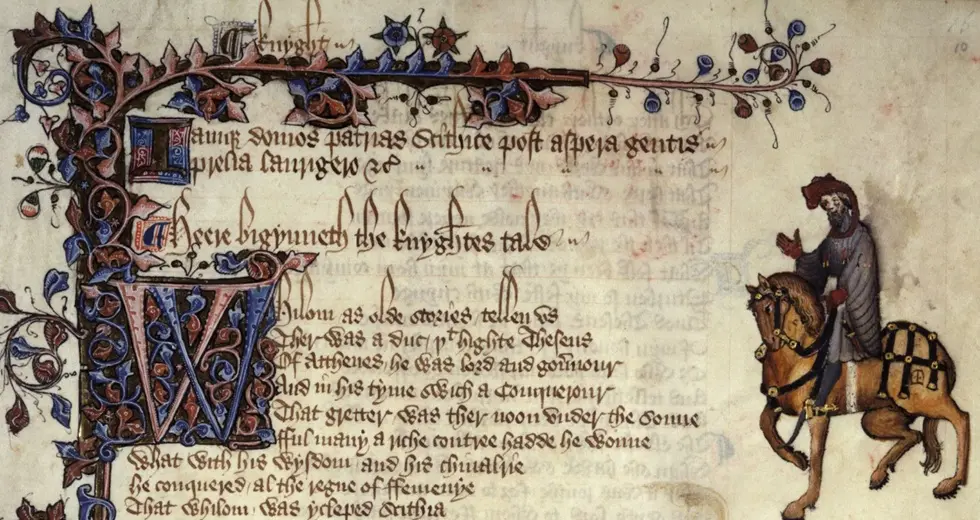 ¶ knyght
Iamque domos patrias Scithice post aspera gentis
prelia laurigero &c
¶ Heere bigynneth the knyghtes tale
Whilom as olde stories tellen vs
Ther was a duc þt highte Theseus
Of Atthenes he was lord and gouernour
And in his tyme swich a Conquerour
That gretter was ther noon vnder the sonne
fful many a riche contree hadde he wonne
What with his wysdom and his chiualrie
he conquered al the regne of ffemenye
That whilom was ycleped Scithia